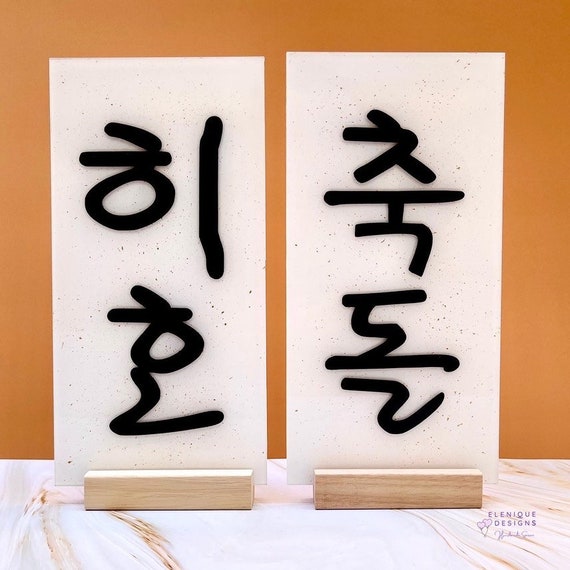 히
호
축
돌
ELENIQUE
DESIGNS